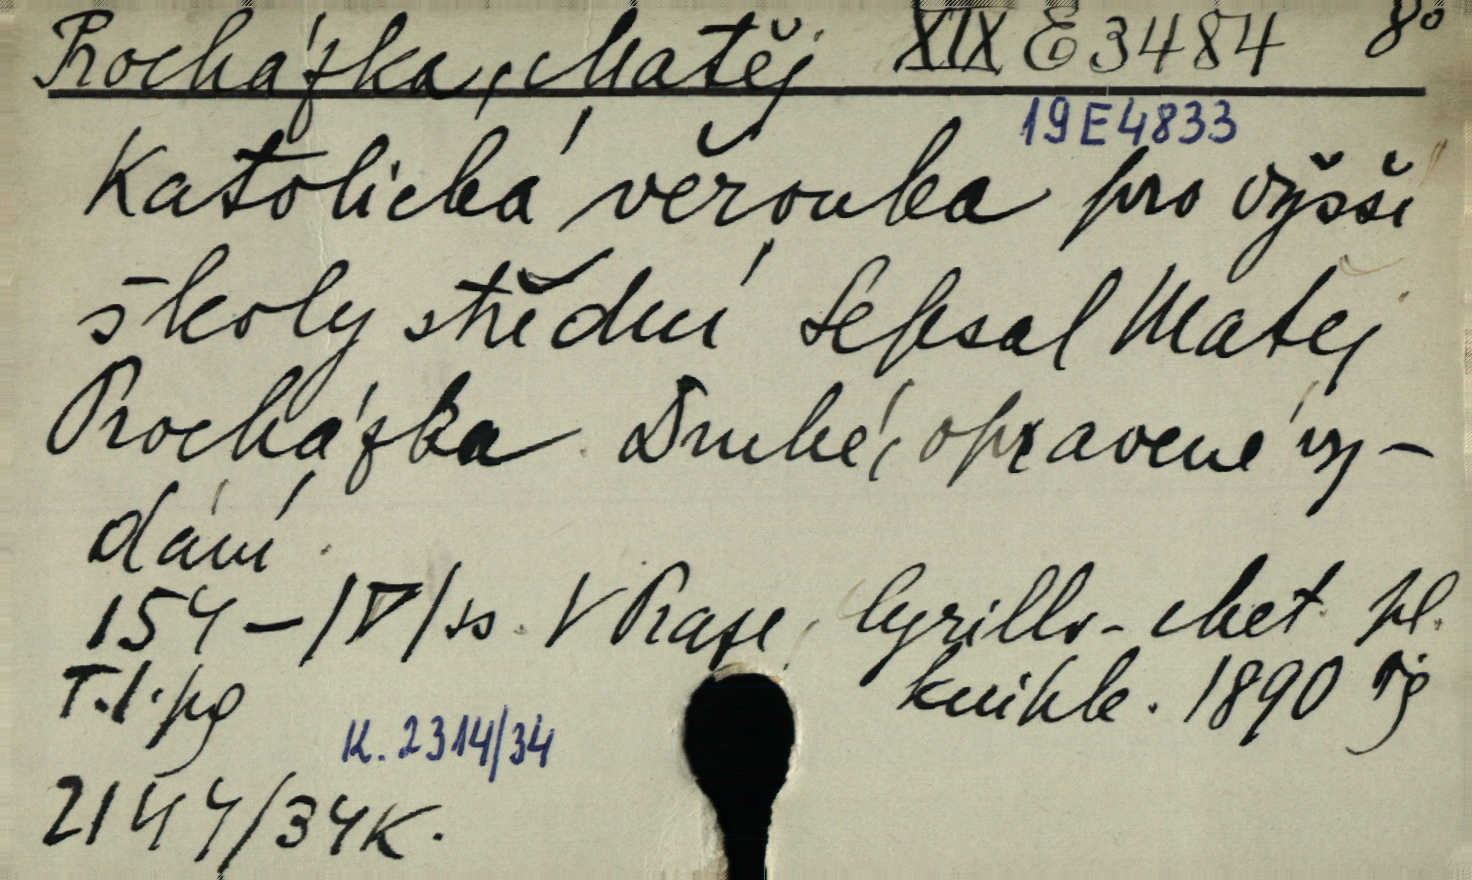 Procházka, Matěj XIX E 3484 8°
19E4833
Katolická věrouka pro vyšší
školy střední sepsal Matěj
Procházka. Druhé, opravené vy-
dání.
154-/V/ss. V Praze, Cyrillo-Met. kl.
knihk. 1890
T.I.pg
K. 2314/34
2144/34K.